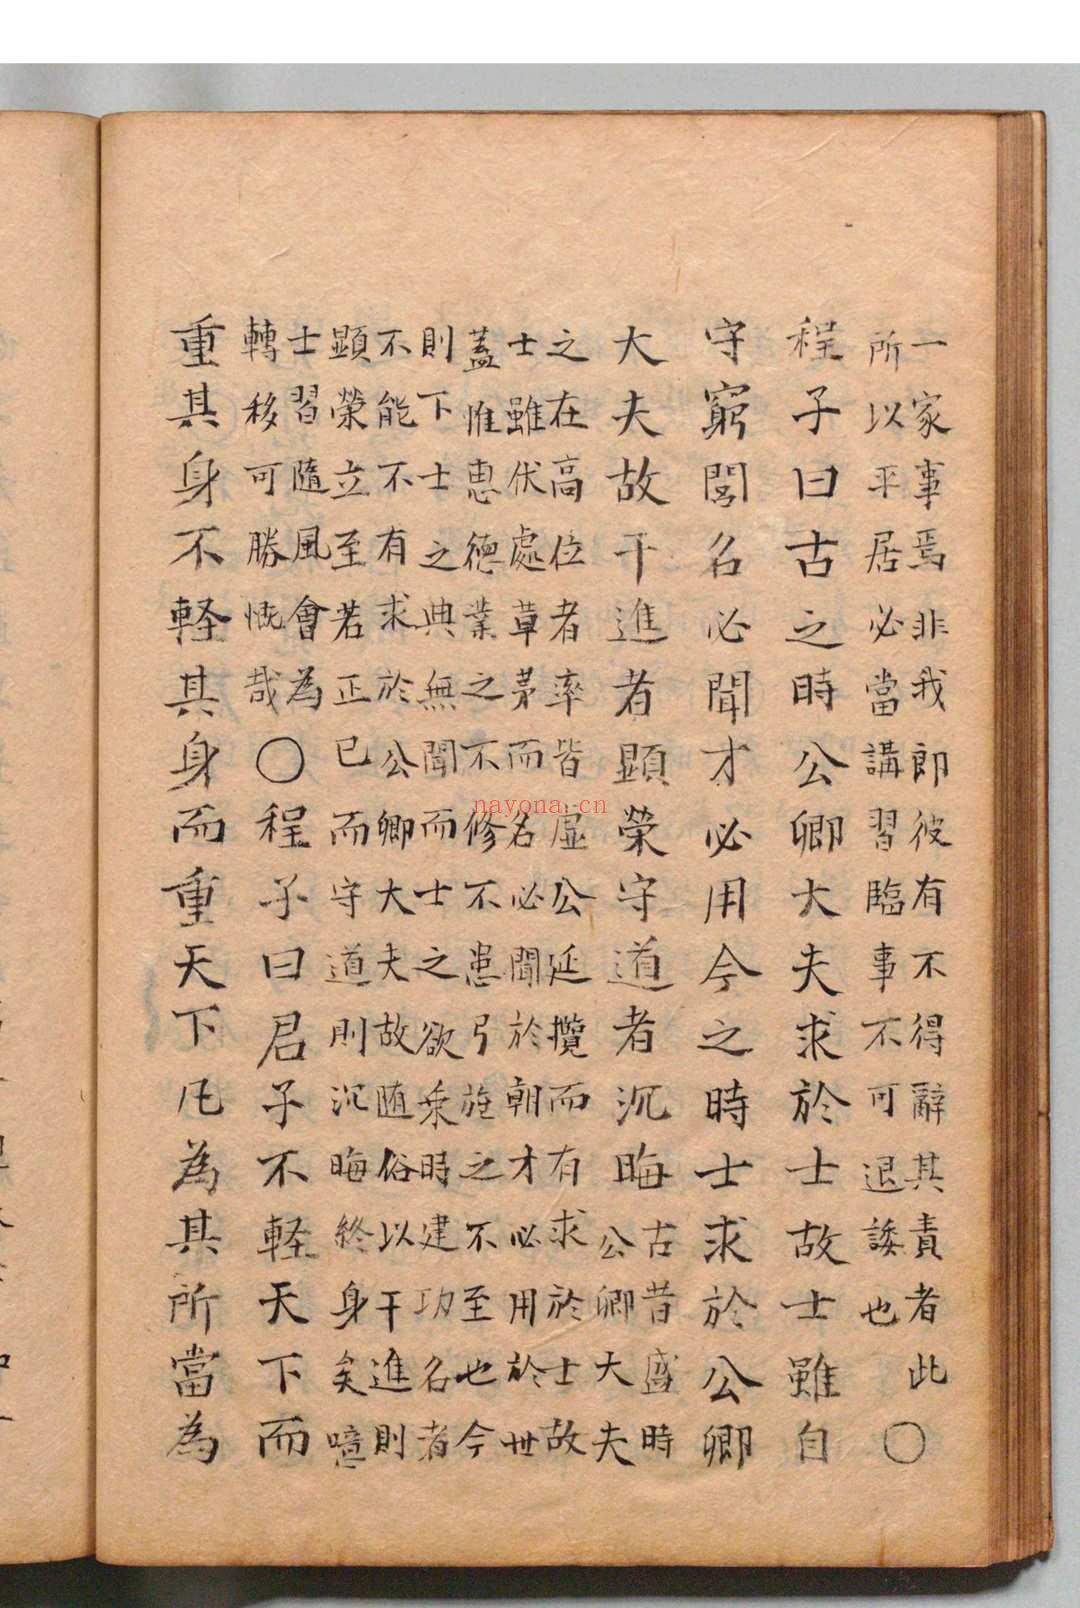 一家事焉非我郎彼有不得辭其責者此
所以平居必當講習臨事不可退諉也
○
程子曰古之時公卿大夫求於士故士雖自
守窮閻名必聞才必用今之時士求於公卿
大夫故干進者顯榮守道者沉晦
古昔盛時
公卿大夫
之在高位者率皆虛公延攬而有求於士故
士雖伏處草茅而名必聞於朝才必用於世
蓋惟患德業之不修不患弓旌之不至也今
則下士之典無聞而士之欲乘時建功名者
不能不有求於公卿大夫故随俗以干進則
顯榮立至若正已而守道則沉晦終身矣噫
士習隨風會為
轉移可勝慨哉
○程子曰君子不軽天下而
重其身不軽其身而重天下凡為其所當為
nayona.cn